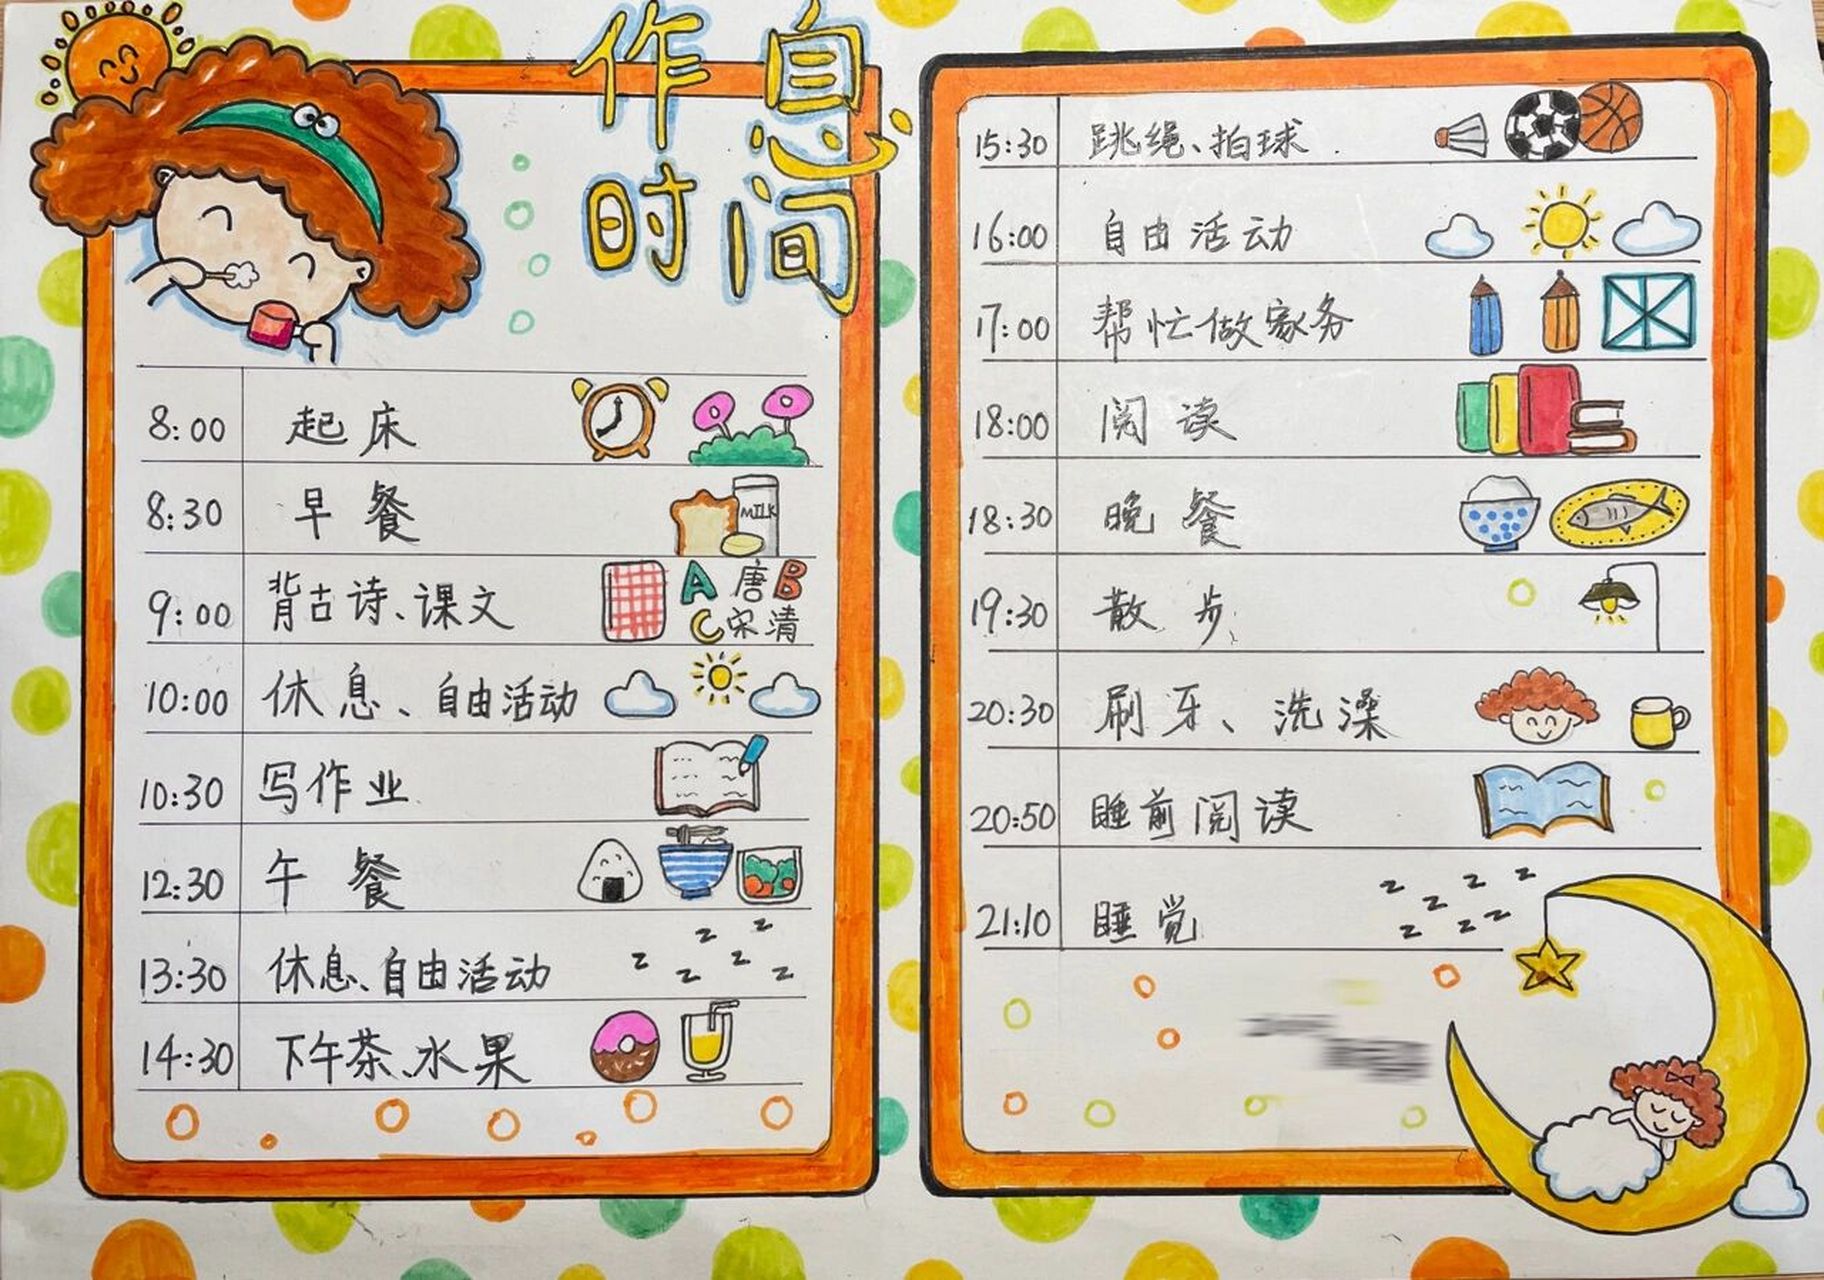 作息
时间
8:00 起床
8:30 早餐
MILK
9:00 背古诗、课文
A 唐 B
C 宋 清
10:00 休息、自由活动
10:30 写作业
12:30 午餐
13:30 休息、自由活动
z z z z z z
14:30 下午茶、水果
15:30 跳绳、拍球.
16:00 自由活动
17:00 帮忙做家务
18:00 阅读
18:30 晚餐
19:30 散步
20:30 刷牙、洗澡
20:50 睡前阅读
21:10 睡觉
z z z z z z z